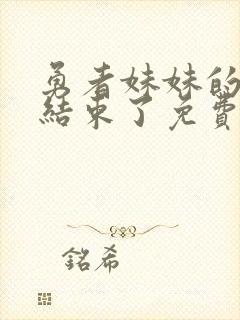 勇者妹妹的
結束了免費
銘希